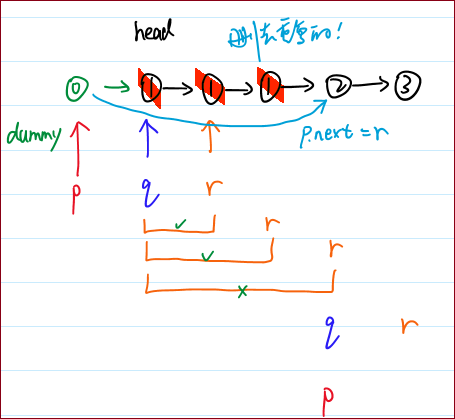 head 删去重复的!
0 1 1 1 2 3
dummy p.next = r
p q r
r
r
q r
p